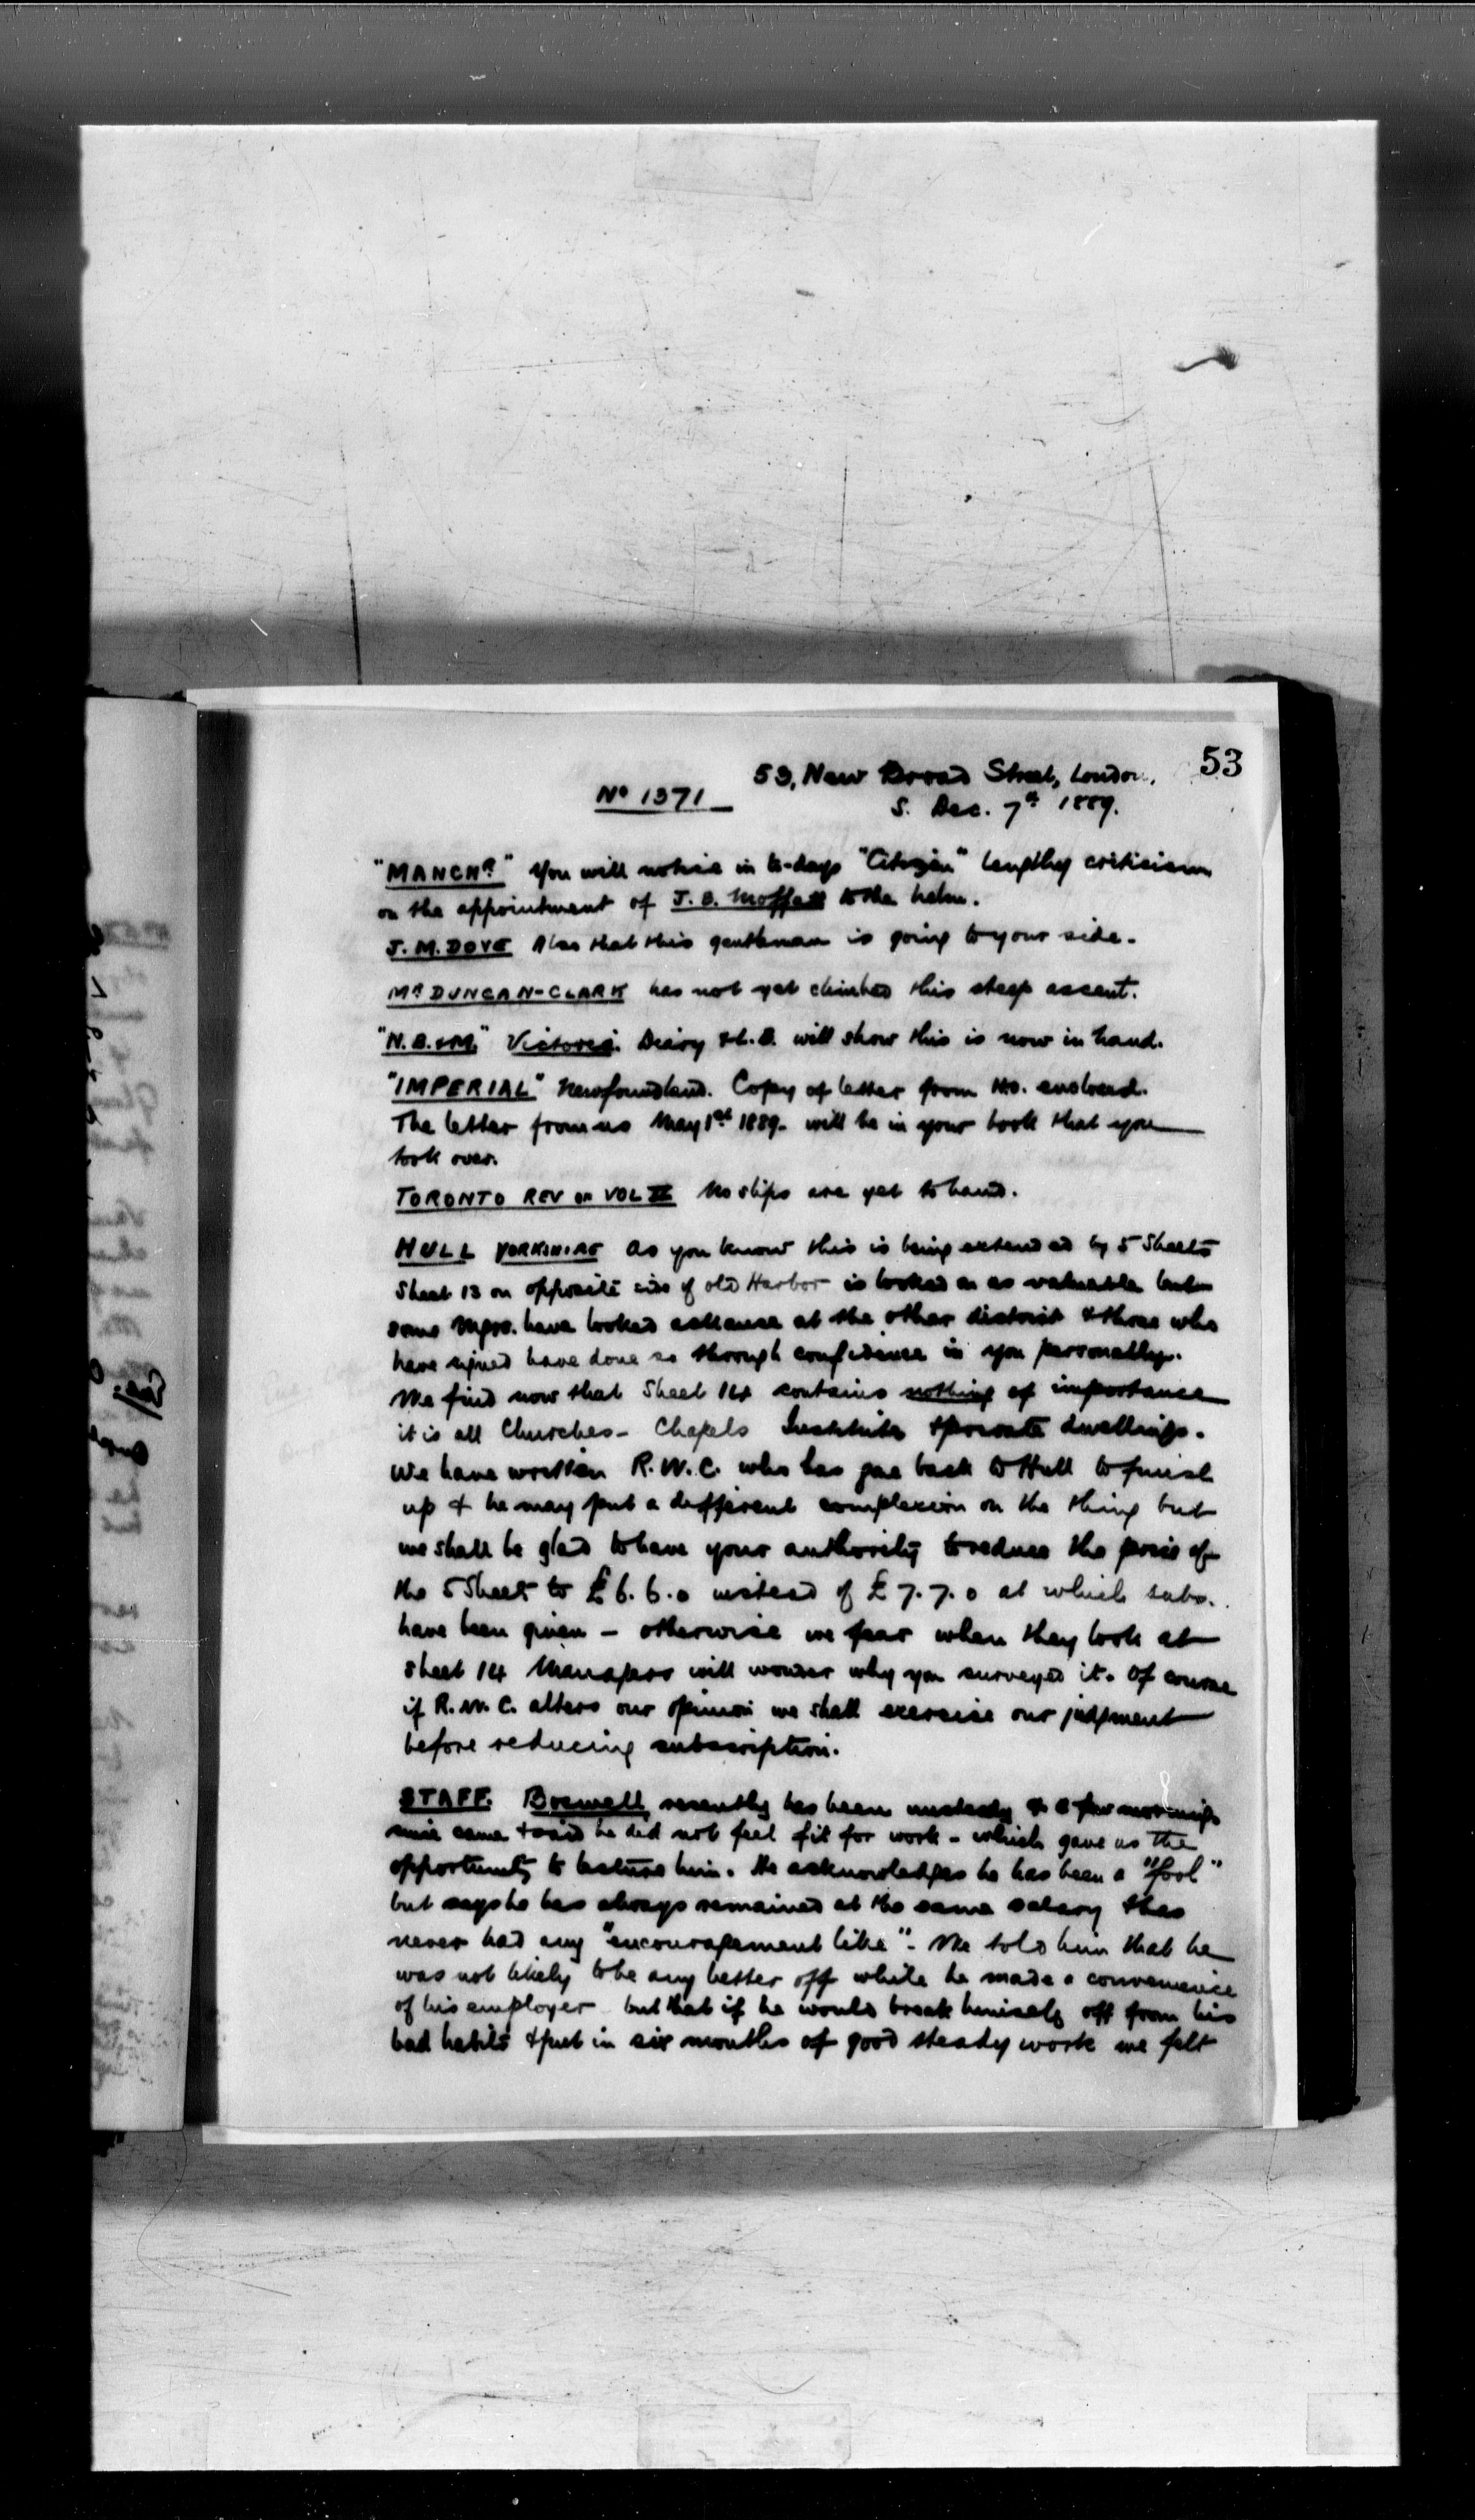 53
53, New Broad Street, London.
No 1371
S. Dec. 7th 1889.
"MANCHR" You will notice in to-days "Citizen" lengthy criticism
on the appointment of J. B. Moffatt to the helm.
J. M. DOVE Also that this gentleman is going to your side.
MR DUNCAN-CLARK has not yet climbed this steep ascent.
"N.B.&M." Victoria. Diary & L.B. will show this is now in hand.
"IMPERIAL" Newfoundland. Copy of letter from HO. enclosed.
The letter from us May 1st 1889. will be in your book that you
took over.
TORONTO REV on VOL II No slips are yet to hand.
HULL YORKSHIRE As you know this is being extended by 5 Sheets
Sheet 13 on opposite side of old Harbor is looked on as valuable but
some Mgrs. have looked askance at the other district & those who
have signed have done so through confidence in you personally.
We find now that Sheet 14 contains nothing of importance
it is all Churches - Chapels Institutes & private dwellings.
We have written R.W.C. who has gone back to Hull to finish
up & he may put a different complexion on the thing but
we shall be glad to have your authority to reduce the price of
the 5 Sheets to £6.6.0 instead of £7.7.0 at which subs.
have been given - otherwise we fear when they look at
sheet 14 Managers will wonder why you surveyed it. Of course
if R.W.C. alters our opinion we shall exercise our judgment
before reducing subscription.
STAFF. Boswell recently has been unsteady & a few mornings
since came & said he did not feel fit for work - which gave us the
opportunity to lecture him. He acknowledges he has been a "fool"
but says he has always remained at the same salary & has
never had any "encouragement like". We told him that he
was not likely to be any better off while he made a convenience
of his employer but that if he would break himself off from his
bad habits & put in six months of good steady work we felt